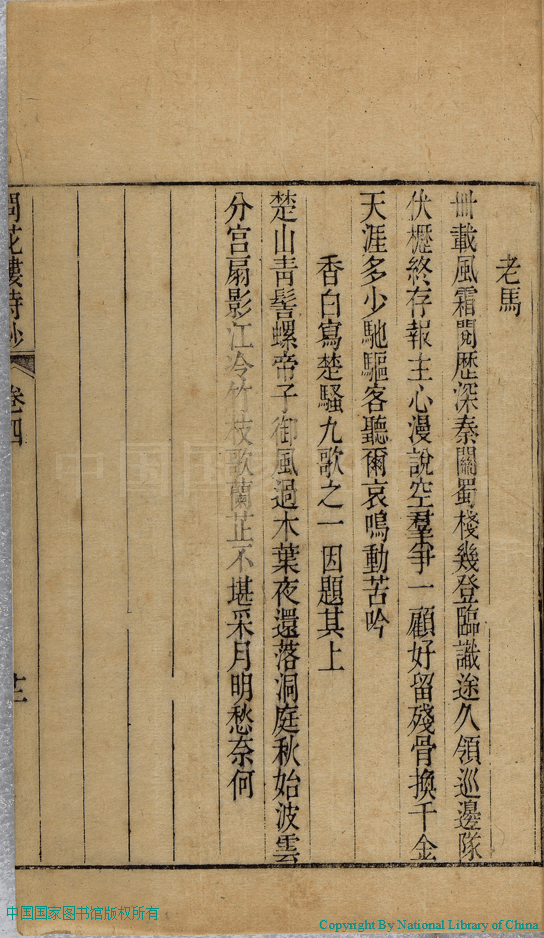 老馬
卌載風霜閱歷深秦關蜀棧幾登臨識途久領巡邊隊
伏櫪終存報主心漫說空羣爭一顧好留殘骨換千金
天涯多少馳驅客聽爾哀鳴動苦吟
香白寫楚騷九歌之一因題其上
楚山青髻螺帝子御風過木葉夜還落洞庭秋始波雲
分宮扇影江冷竹枝歌蘭芷不堪采月明愁奈何
花樓詩鈔 卷四
中国国家图书馆版权所有
Copyright By National Library of China